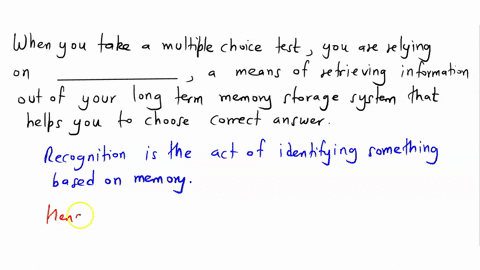 When you take a multiple choice test, you are relying
on ____________, a means of retrieving information
out of your long term memory storage system that
helps you to choose correct answer.
Recognition is the act of identifying something
based on memory.
Hen